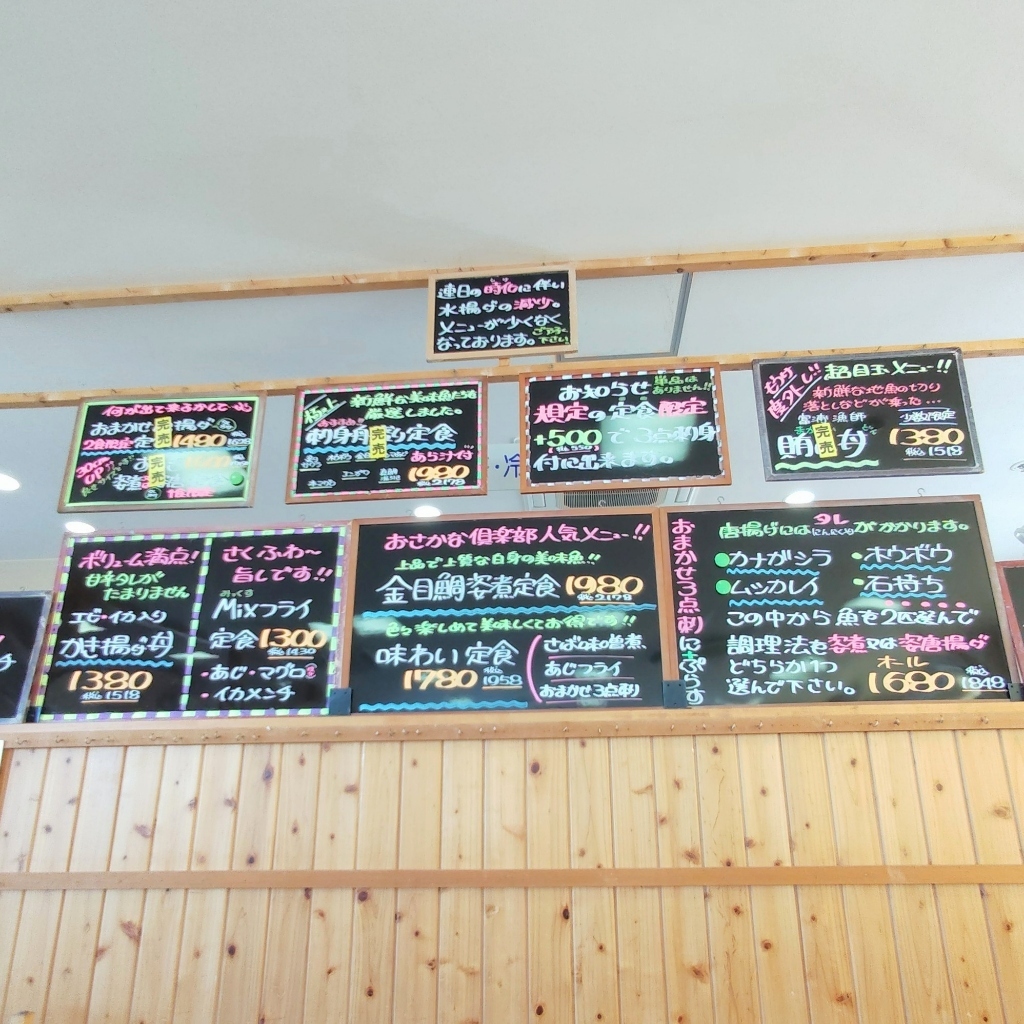 連日の時化に伴い
水揚げの減少。
メニューが少なくなく
なっております。ご了承下さい。
何が出て来るかしら
おまかせ 完売 揚げ
2食限定 定 1480 1628
30cm
完売
姿煮
極上
新鮮な美味魚たちを
厳選しました。
刺身 完売 り定食
あら汁付
1980
税込2178
お知らせ 単品はありません!!
想定の定食限定
+500で3点刺身
税込550
付に出来ます。
もうけ度外し!!
超目玉メニュー!!
新鮮な地魚の切り
落としなどが乗った…
漁師 少数限定
完売 丼 1380
税込1518
ボリューム満点!
甘辛タレが
たまりません
エビ・イカ入り
かき揚げ丼
1380
税込1518
さくふわ〜
旨しです!!
みっくす
Mixフライ
定食 1300
税込1430
・あじ・マグロ
・イカメンチ
おさかな倶楽部人気メニュー!!
上品で上質な白身の美味魚!!
金目鯛姿煮定食 1980
税込2178
色々楽しめて美味しくてお得です!!
味わい定食
1780 税込1958
さば味噌煮、
あじフライ
おまかせ3点刺り
おまかせ3点刺にぷらす
タレ
唐揚げにはがかかります。
●カナガシラ ・ホウボウ
●ムシカレイ ・石持ち
この中から魚を2匹選んで
調理法を姿煮又は姿唐揚げ
どちらかいつ
選んで下さい。
オール
1680 税込1848